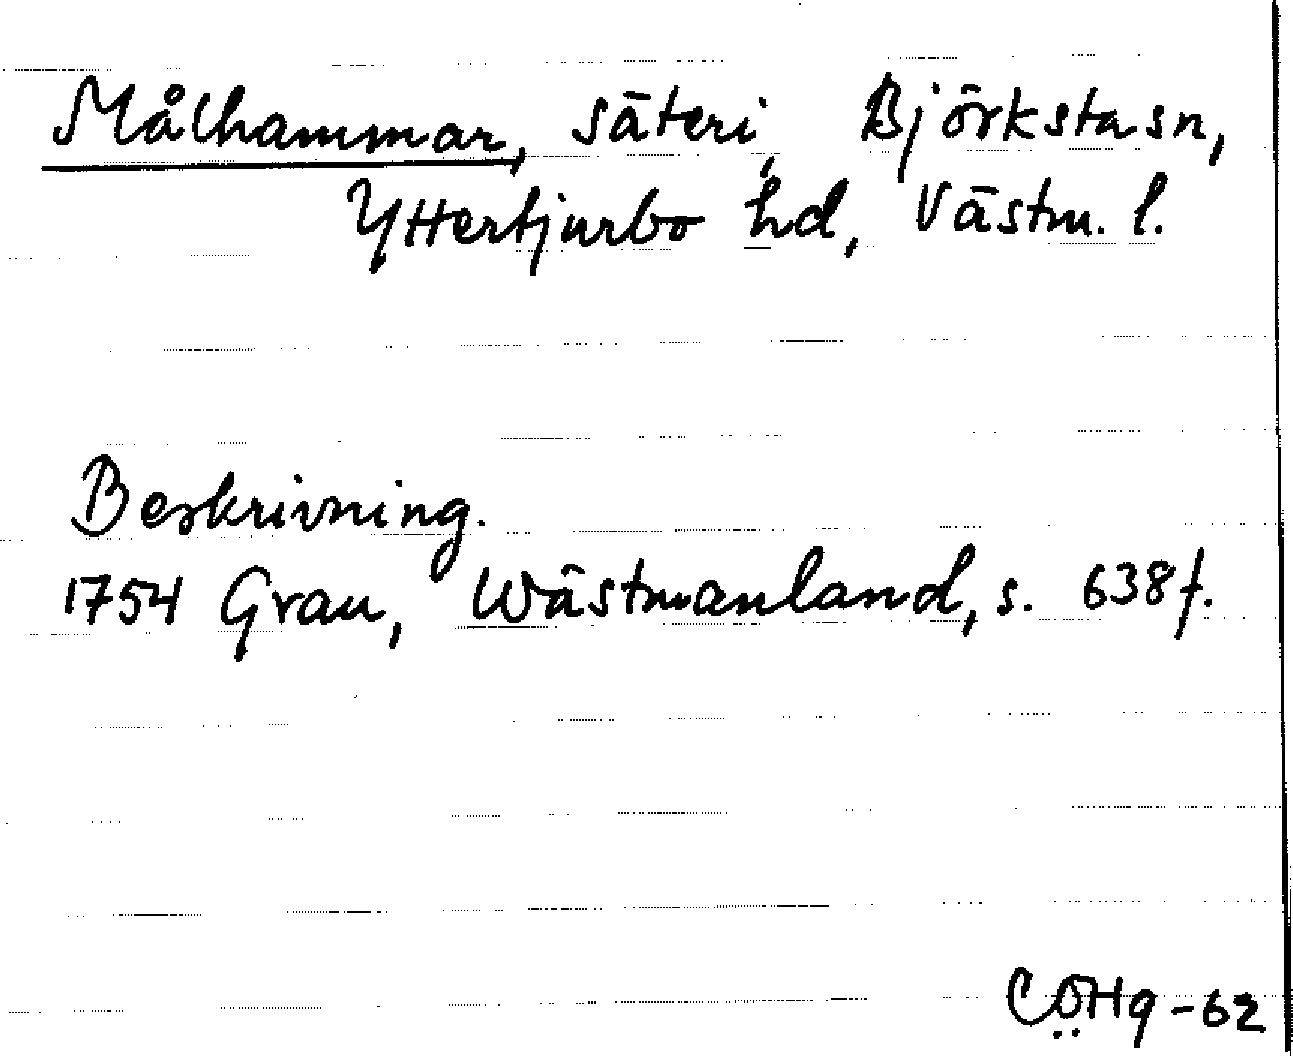 Målhammar, säteri, Björksta sn,
Yttertjurbo hd, Västm. l.
Beskrivning.
1754 Grau, Wästmanland, s. 638 f.
CÖHg-62